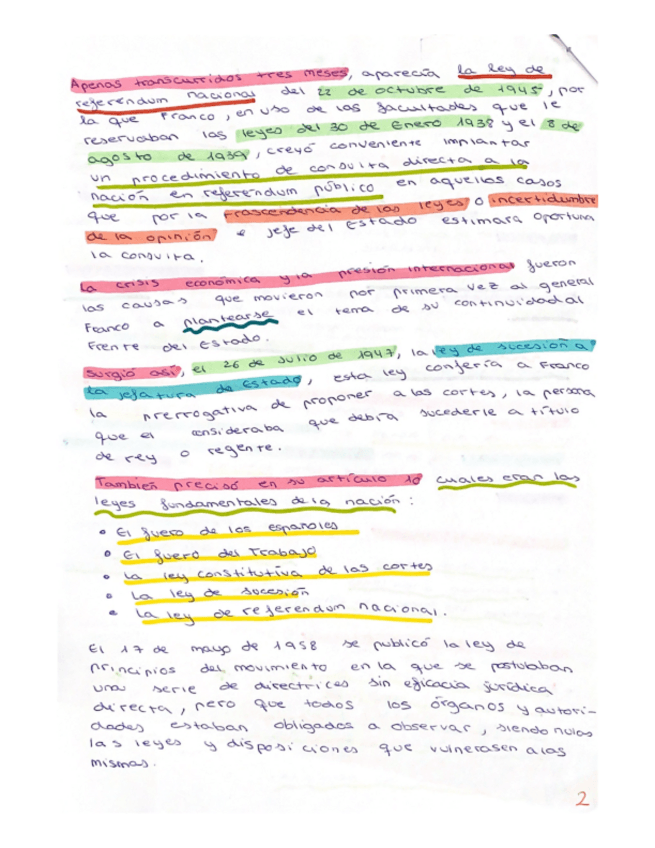 Apenas transcurridos tres meses, aparecía la ley de
referéndum nacional del 22 de octubre de 1945, por
la que Franco, en uso de las facultades que le
reservaban las leyes del 30 de Enero 1938 y el 8 de
agosto de 1939, creyó conveniente implantar
un procedimiento de consulta directa a la
nación en referendum público en aquellos casos
que por la trascendencia de las leyes o incertidumbre
de la opinión e jefe del Estado estimara oportuna
la consulta.
La crisis económica y la presión internacional fueron
las causas que movieron por primera vez al general
Franco a plantearse el tema de su continuidad al
Frente del Estado.
Surgió así, el 26 de Julio de 1947, la ley de sucesión a
la jefatura de Estado, esta ley confería a Franco
la prerrogativa de proponer a las cortes, la persona
que él consideraba que debía sucederle a título
de rey o regente.
También precisó en su artículo 10 cuales eran las
leyes fundamentales de la nación:
• El fuero de los españoles
• El fuero del Trabajo
• La ley constitutiva de las cortes
• La ley de sucesión
• La ley de referendum nacional.
El 17 de mayo de 1958 se publicó la ley de
principios del movimiento en la que se postulaban
una serie de directrices sin eficacia jurídica
directa, pero que todos los órganos y autori-
dades estaban obligados a observar, siendo nulas
las leyes y disposiciones que vulnerasen a las
mismas.
2